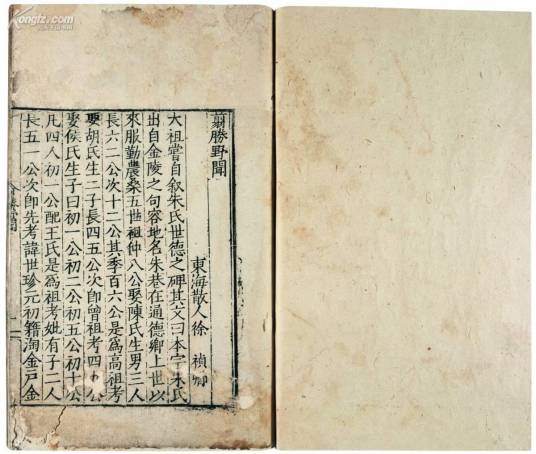 Kongfz.com
翦勝野聞
東海散人徐禎卿
太祖嘗自叙朱氏世德之碑其文曰本宗朱氏
出自金陵之句容地名朱巷在通德鄉上世以
來服勤農桑五世祖仲八公娶陳氏生男三人
長六二公次十二公其季百六公是爲高祖考
娶胡氏生二子長四五公次即曾祖考四九公
娶侯氏生子曰初一公初二公初五公初十公
凡四人初一公配王氏是爲祖考妣有子二人
長五一公次即先考諱世珍元初籍淘金戶金